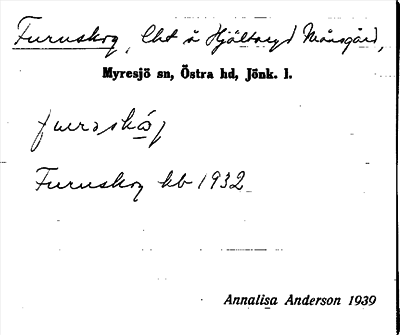 Furuskog, lht å Hjältaryd Månsgård,
Myresjö sn, Östra hd, Jönk. l.
furoskóg
Furuskog kb 1932
Annalisa Anderson 1939